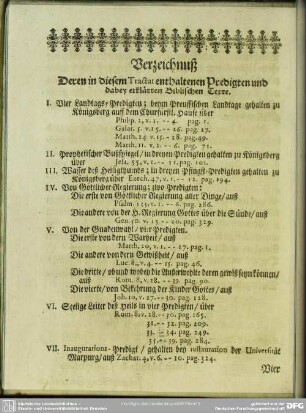 Verzeichnuß
Deren in diesem Tractat enthaltenen Predigten und
dabey erklärten Biblischen Texte.
I. Vier Landtags-Predigten; beym Preussischen Landtage gehalten zu
Königsberg auff dem Churfürstl. Hause über
Philip. 1, v. 1. -- 4. pag. 1.
Galat. 5. v. 15. -- 26. pag. 17.
Matth. 24. v. 15. -- 28. pag. 49.
Matth. 11. v. 1. -- 6. pag. 71.
II. Prophetischer Bußspiegel / in dreyen Predigten gehalten zu Königsberg
über Jesa. 55, v. 1. -- 11. pag. 101.
III. Wasser deß Heiligthumbs; in dreyen Pfingst-Predigten gehalten zu
Königsberg über Ezech. 47, v. 1. -- 12. pag. 194.
IV. Von Göttlicher Regierung; zwo Predigten:
Die erste von Göttlicher Regierung aller Dinge / auß
Psalm. v. 1. -- 6. pag. 286.
Die andere von der H. Regierung Gottes über die Sünde / auß
Gen. 50, v. 20. pag.
V. Von der Gnadenwahl / vier Predigten.
Die erste von dero Warheit / auß
Matth. 20, v. 1. -- 17. pag. 1.
Die andere von dero Gewißheit / auß
Luc. 8, v. 4. -- 15. pag. 46.
Die dritte / ob und wobey die Außerwehlte deren gewiß seyn können /
auß Rom. 8, v. 28. -- 39. pag. 90.
Die vierte / von Bekehrung der Kinder Gottes / auß
Joh. 10, v. 27. -- 30. pag. 128.
VI. Seelige Leiter deß Heils in vier Predigten / über
Rom. 8. v. 28. -- 30. pag. 165.
31. -- 32. pag. 209.
33. -- 34. pag. 249.
35. -- 39. pag. 284.
VII. Inaugurations-Predigt / gehalten bey restauration der Universität
Marpurg / auß Zachar. 4, v. 6. -- 10. pag. 324.
Vier